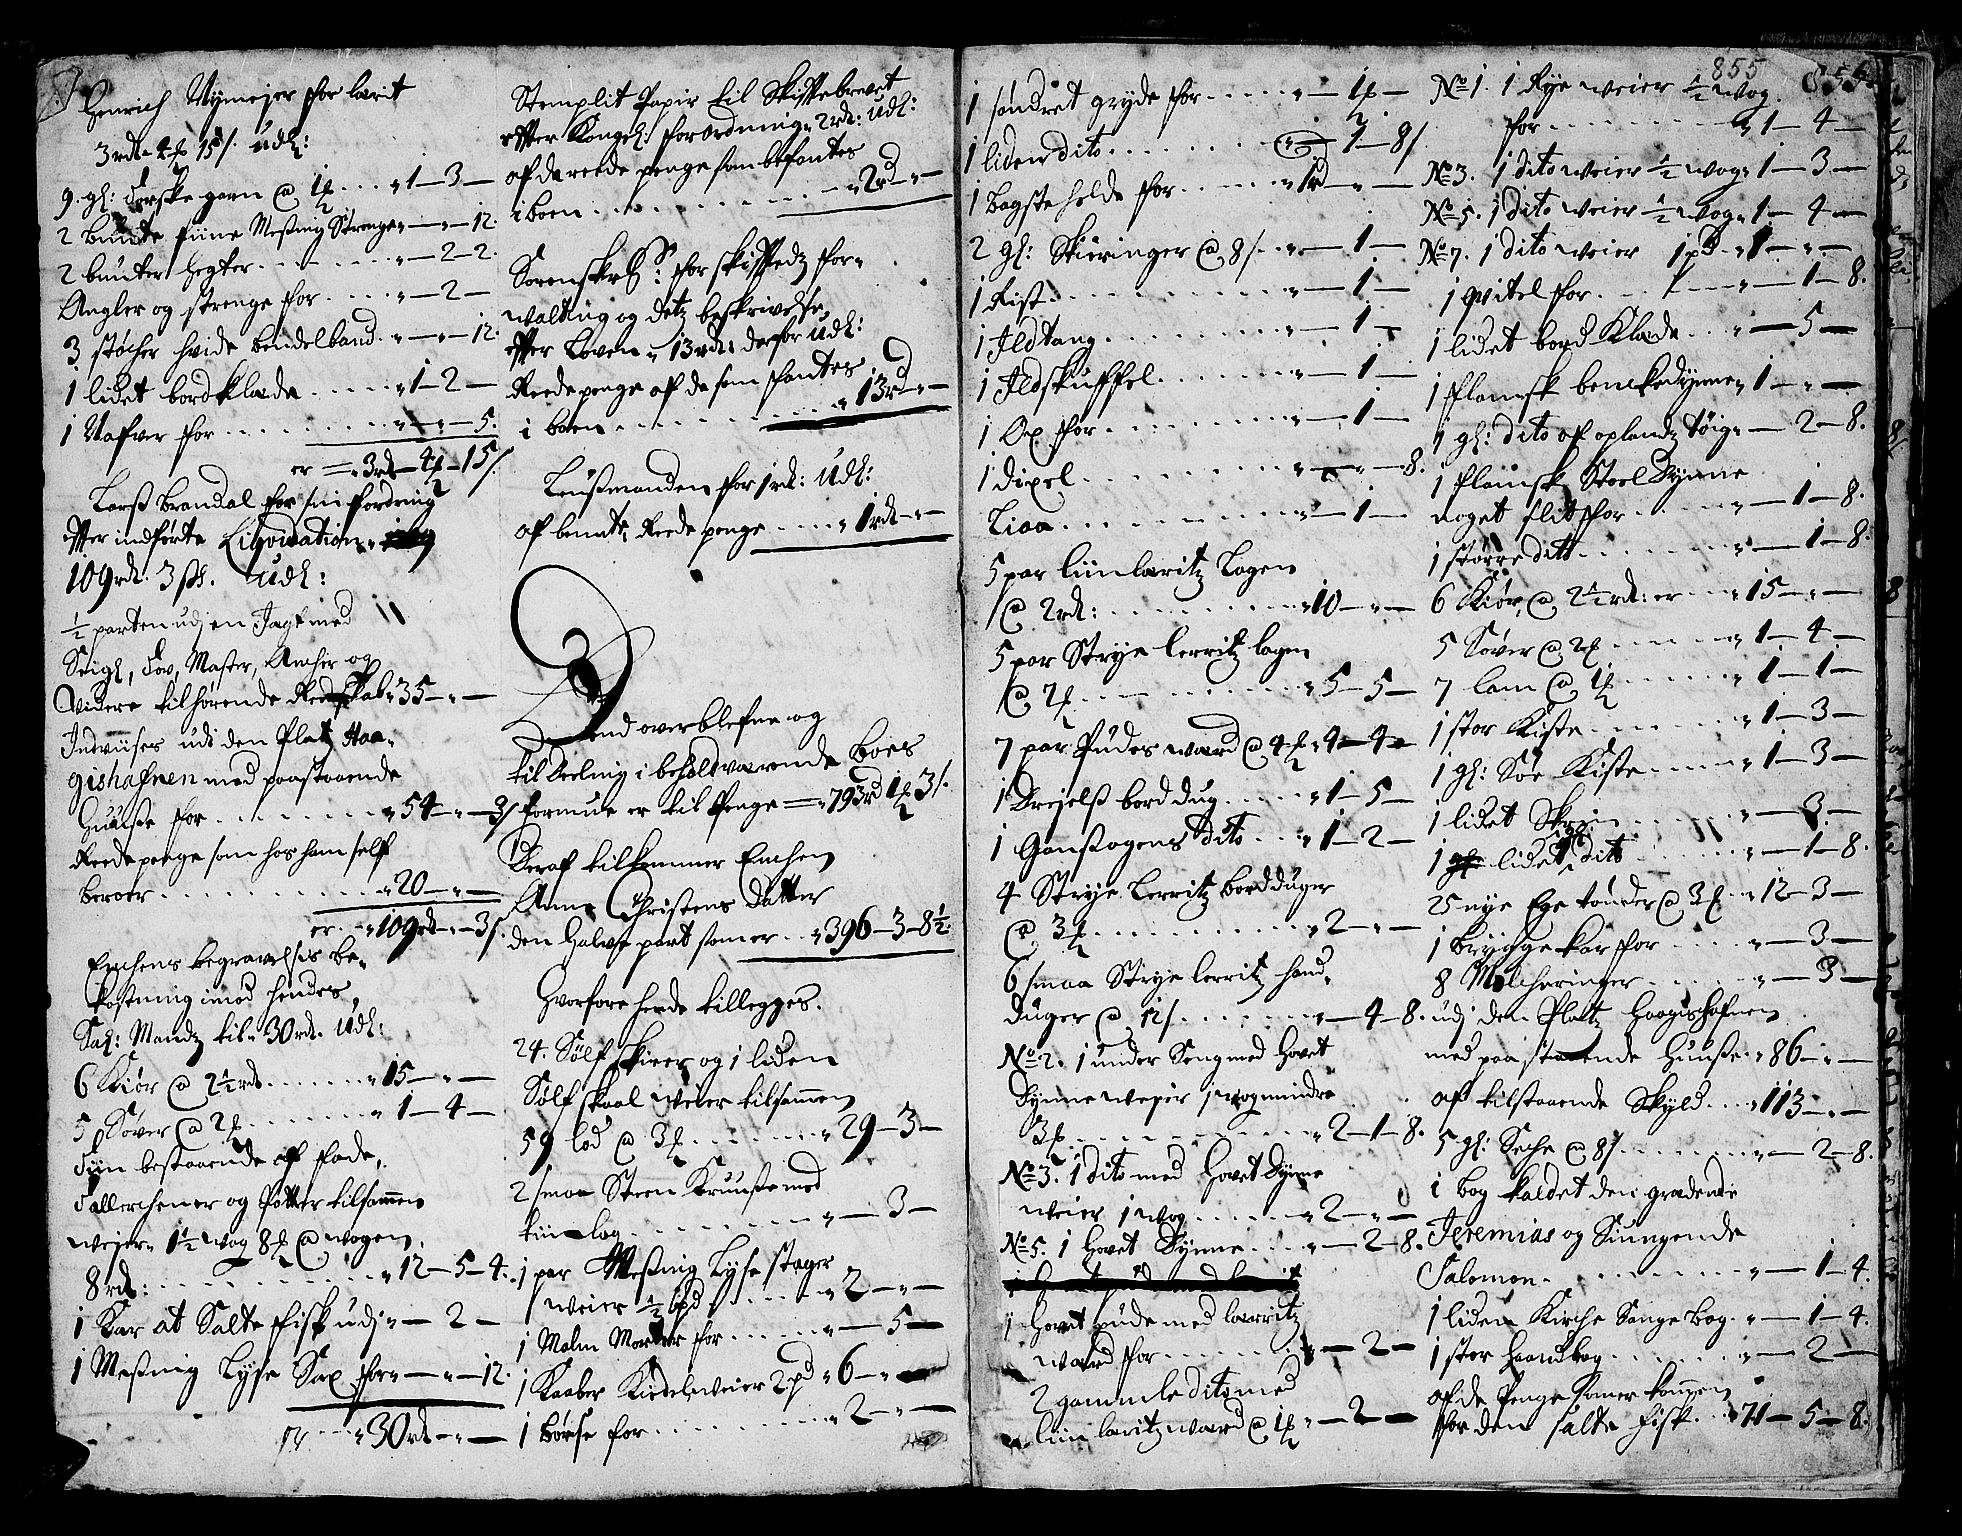 Henrich Nymejer for larit
3 rdr 4 ℔ 15 s. Udl:
9. gl: torske garn @ 1 ℔ .... „ 1 — 3 —
2 bundte fiine Messing Strenge „ — „ — 12.
2 bunter hegter ....... „ — 2 — 2.
Angler og strenge for .... „ — 2 —
3 støcher hvide bendelbaand . „ — „ — 12.
1 lidet bordklæde ..... „ 1 — 2 —
1 Nafver for ......... „ — „ — 5.
er = „ 3 rdr — 4 ℔ — 15 s.
Larss Brandal for sin fordring
effter indførte Liqvidation „
109 rdr. 3 sk. Udl:
½ parten udj en Jagt med
Seigl, Tov, Master, Ancher og
Videre tilhørende Redskab „ 35 — „ —
Indviises udi den Platz Haa-
gishafnen med paastaaende
Huusse for ......... „ 54 — „ — 3 s
Reede penge som hos ham self
beroer ............ „ 20 — „ —
er .. „ 109 rdr — „ — 3 s.
Enchens begravelsis be-
kostning imod hendes
Sal: Mandz til „ 30 rdr. Udl:
6 Kiør @ 2½ rdr ....... „ 15 — „ —
5 Søver @ 2 ℔ ........ „ 1 — 4 —
Tiin bestaaende af fade,
Tallerchener og Potter tilsammen
wejer „ 1½ wog 8 ℔ @ wogen
8 rdr: ............ „ 12 — 5 — 4.
1 Kar at Salte fisk udj „ — 2 —
1 Messing Lyse Sax for „ — „ — 12.
er ... „ 30 rdr — „ —
Stemplit Papir til Skiftebrevet
effter Kongel: forordning „ 2 rdr: Udl:
af de reede penge som befantes
i boen .......... „ 2 rd — „ —
Sorenskr: for skifftedz for-
walting og detz beskrivelse
effter Loven „ 13 rdr: derfor Udl:
Reede penge af de som fantes
i boen ........... „ 13 rd — „ —
Leussmanden for 1 rd: Udl:
af benevte Reede penge .... „ 1 rdr — „ —
End overblefne og
til Deeling i behold værende Boes
formue er til Penge = „ 793 rd 1 ℔ 3 s.
Deraf tilkommer Enchen
Anne Christens Datter
den Halve part som er .. „ 396 — 3 — 8½.
Hvorfore hende tillegges.
24. Sølf skieer og 1 liden
Sølf skaal weier tilsammen
59 lod @ 3 ℔ ....... „ 29 — 3 —
2 smaa Steen Kruusse med
tiin laag ......... „ — 3 —
1 par Messing Lyse stager
weier ½ bpd ...... „ 2 — „ —
1 Malm Morter for ...... „ — 5 —
1 Kaaber Kiedel weier 2 pd „ 6 — „ —
1 Børse for ......... „ 2 — „ —
1 søndret gryde for ..... „ — 1 ℔ —
1 liden dito ........ „ — 1 — 8 s
1 Bagste helde for ..... „ 1 rd — „ —
2 gl: Skieringer @ 8 s .. „ — 1 —
1 Rist ........... „ — 1 —
1 Ildtang ......... „ — 1 —
1 Ildskuffel ....... „ — 1 —
1 Ox for ......... „ — 1 —
1 Dixel .......... „ — „ — 8.
Liaa ........... „ — 1 —
5 par liin læritz Lagen
@ 2 rdr: .......... „ 10 — „ —
5 par Strye lerritz lagen
@ 7 ℔ .......... „ 5 — 5 —
7 par Pudes waard @ 4 ℔ „ 4 — 4 —
1 Drejelss bord dug ..... „ 1 — 5 —
1 Ganssøgens dito ... „ 1 — 2 —
4 Strye Lerritz bordduger
@ 3 ℔ ........... „ 2 — „ —
6 smaa Strye lerritz haand-
duger @ 12 s ........ „ — 4 — 8.
No 2. 1 under Seng med Hovet
Dynne wejer 1 wog mindre
3 ℔ ............ „ 2 — 1 — 8.
No 3. 1 dito med Hovet Dynne
weier 1 wog ....... „ 2 — „ —
No 5. 1 Hovet Dynne .... „ — 2 — 8.
1 Hovet pude med lærritz
waard for ........ „ — 2 —
2 gammle dito med
liin læritz waard @ 1 ℔ „ — 2 —
855
No 1. 1 Rye weier ½ wog.
for ........... „ 1 — 4 —
No 3. 1 dito weier ½ wog „ 1 — 3 —
No 5. 1 dito weier ½ wog „ 1 — 4 —
No 7. 1 dito weier 1 pd „ 1 — „ —
1 qvitel for ...... „ — 1 — 8.
1 lidet bord Klæde .. „ — 5 —
1 flamsk benckedynne „ 1 — „ —
1 gl: dito af oplandz tøig „ — 2 — 8.
1 flamsk Stoel Dynne
noget slit for ...... „ — 1 — 8.
1 større dito ........ „ — 1 — 8.
6 Kiør, @ 2½ rdr: er ... „ 15 — „ —
5 Søver @ 2 ℔ ..... „ 1 — 4 —
7 lam @ 1 ℔ ...... „ 1 — 1 —
1 stor Kiste ...... „ 1 — 3 —
1 gl: Søe Kiste ..... „ 1 — 3 —
1 lidet Skrin ...... „ — 3 —
1 lidet dito ..... „ — 1 — 8.
25 nye Ege tønder @ 3 ℔ .. „ 12 — 3 —
1 brygge kar for .... „ — 3 —
8 Melcheringer ..... „ — 3 —
udj den Platz Haagishafnen
med paa staaende Huusse .. „ 86 — „ —
af tilstaaende Skyld ... „ 113 — „ —
5 gl: Seche @ 8 s ...... „ — 2 — 8.
1 bog kaldet den grædende
Jeremias og Siungende
Salomon ......... „ — 1 — 4.
1 liden Kirche Sange bog . „ — 1 — 4.
1 stor haandbog ...... „ — 2 —
af de Penge som er kommen
for den salte fisk .. „ 71 — 5 — 8.